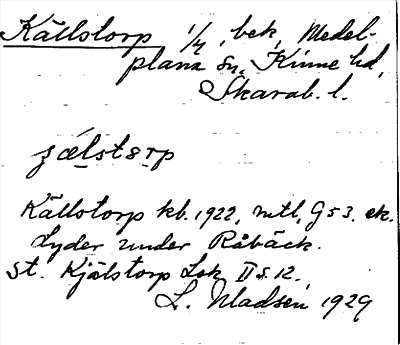 Källstorp 1/4, bek, Medel-
plana sn, Kinne hd,
Skarab. l.
Källstorp kb. 1922, mtl, G 53. ek.
Lyder under Råbäck.
St. Kjälstorp Lok II s. 12.
L. Madsen 1929